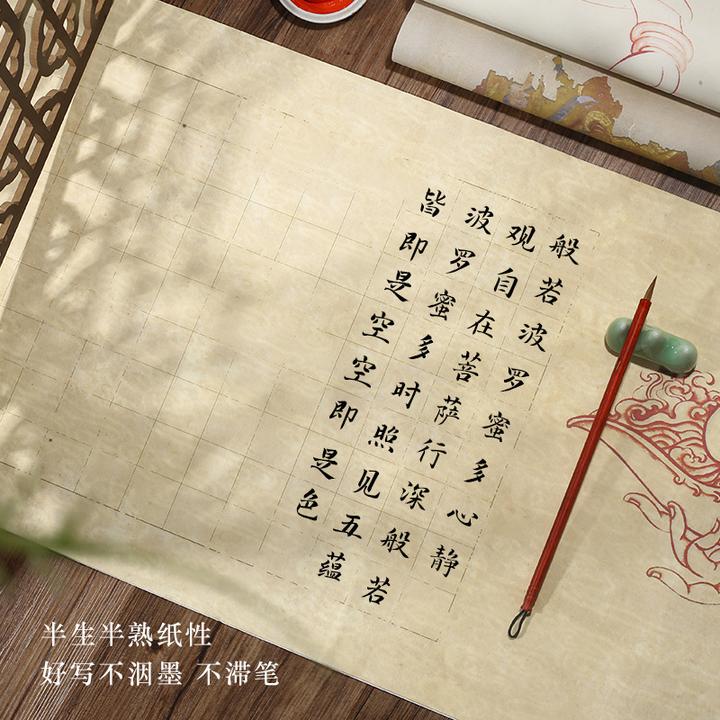 般若波罗蜜多心静
观自在菩萨行深般若
波罗蜜多时照见五蕴
皆即是空空即是色
半生半熟纸性
好写不洇墨 不滞笔